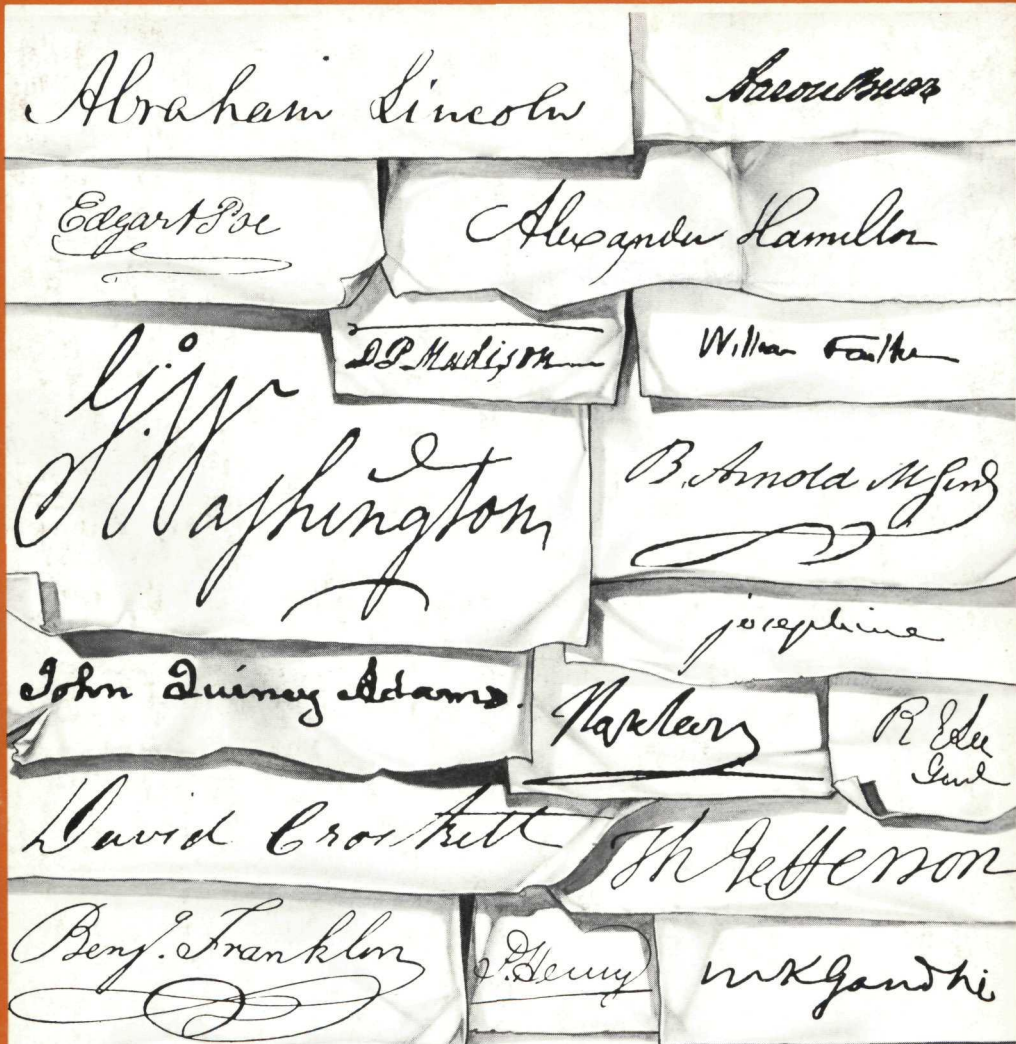 Abraham Lincoln
Aaron Burr
Edgar A Poe
Alexander Hamilton
D.P. Madison
William Faulkner
G. Washington
B. Arnold M Genl
josephine
John Quincy Adams.
Napoleon
R E Lee
Genl
David Crockett
Th Jefferson
Benj. Franklin
P. Henry
MK Gandhi